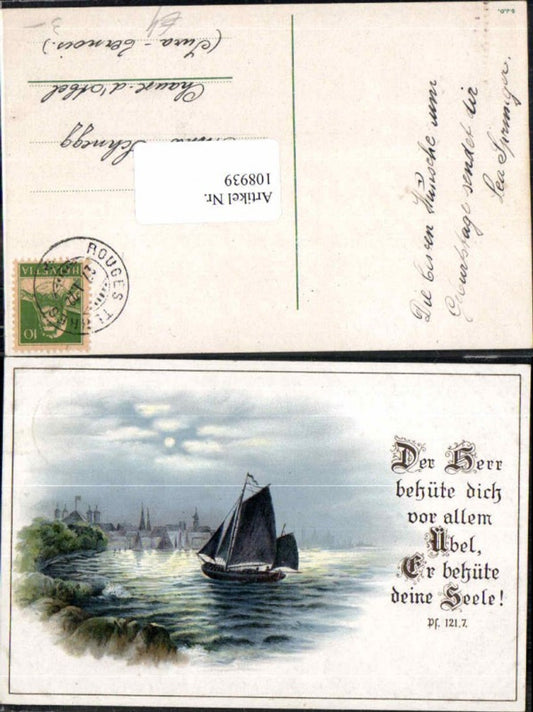 (Jura-Bernois.)
Chaux d'Abel
Schnegg
Artikel Nr.
108939
ROUGES T
HELVETIA
10
Die besten Wünsche zum
Geburtstage sendet dir
Lea Springer.
Der Herr
behüte dich
vor allem
Übel,
Er behüte
deine Seele!
Ps. 121.7.